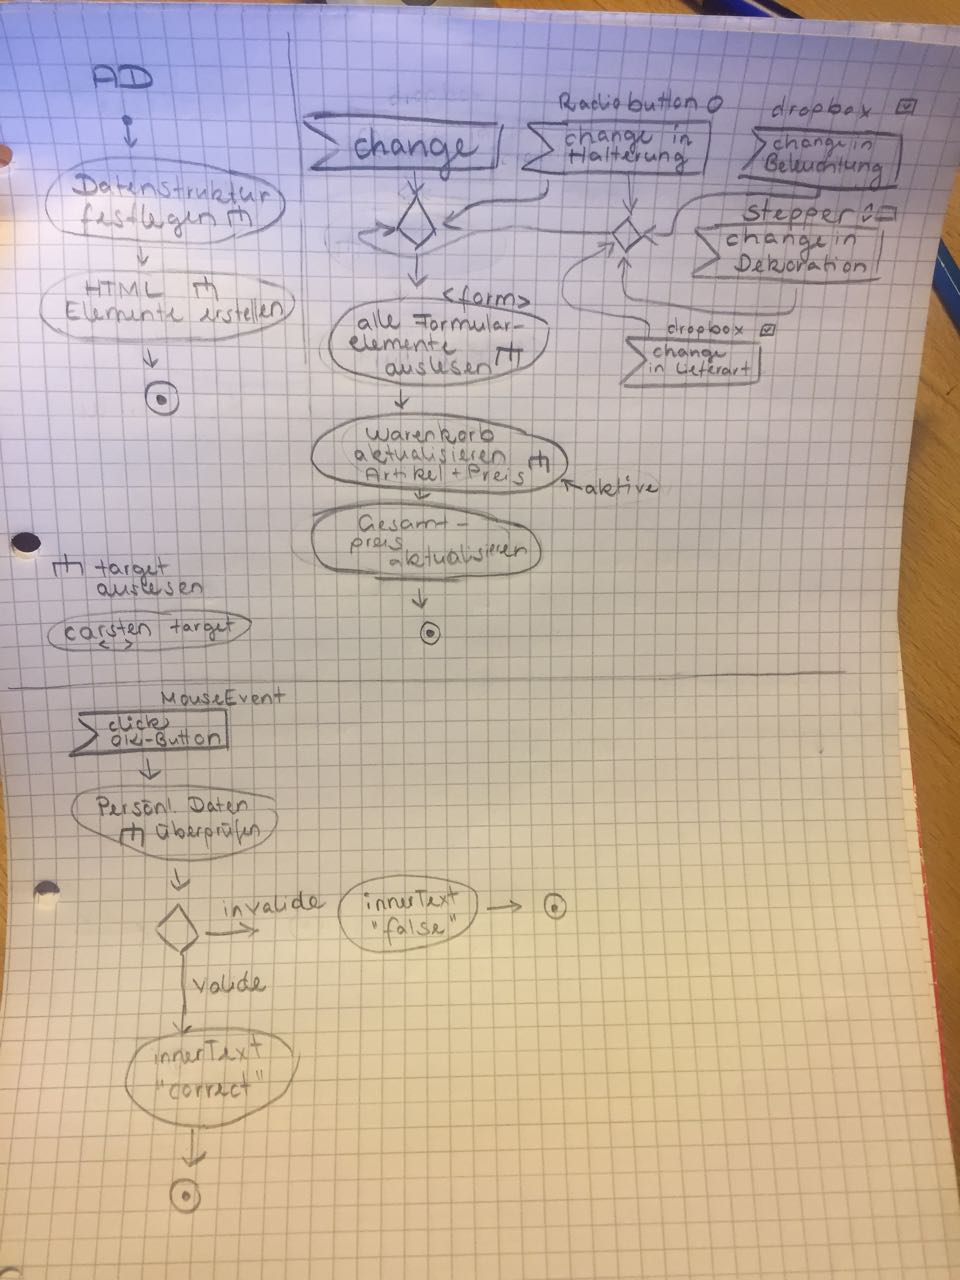 AD
Datenstruktur
festlegen
HTML
Elemente erstellen
change
Radiobutton
change in
Halterung
dropbox
change in
Beleuchtung
Stepper
change in
Dekoration
dropbox
change
in Lieferart
<form>
alle Formular-
elemente
auslesen
Warenkorb
aktualisieren
Artikel + Preis
aktive
Gesamt-
preis
aktualisieren
target
auslesen
carsten target
< >
MouseEvent
click
OK-Button
Persönl. Daten
überprüfen
invalide
innerText
"false"
valide
innerText
"correct"